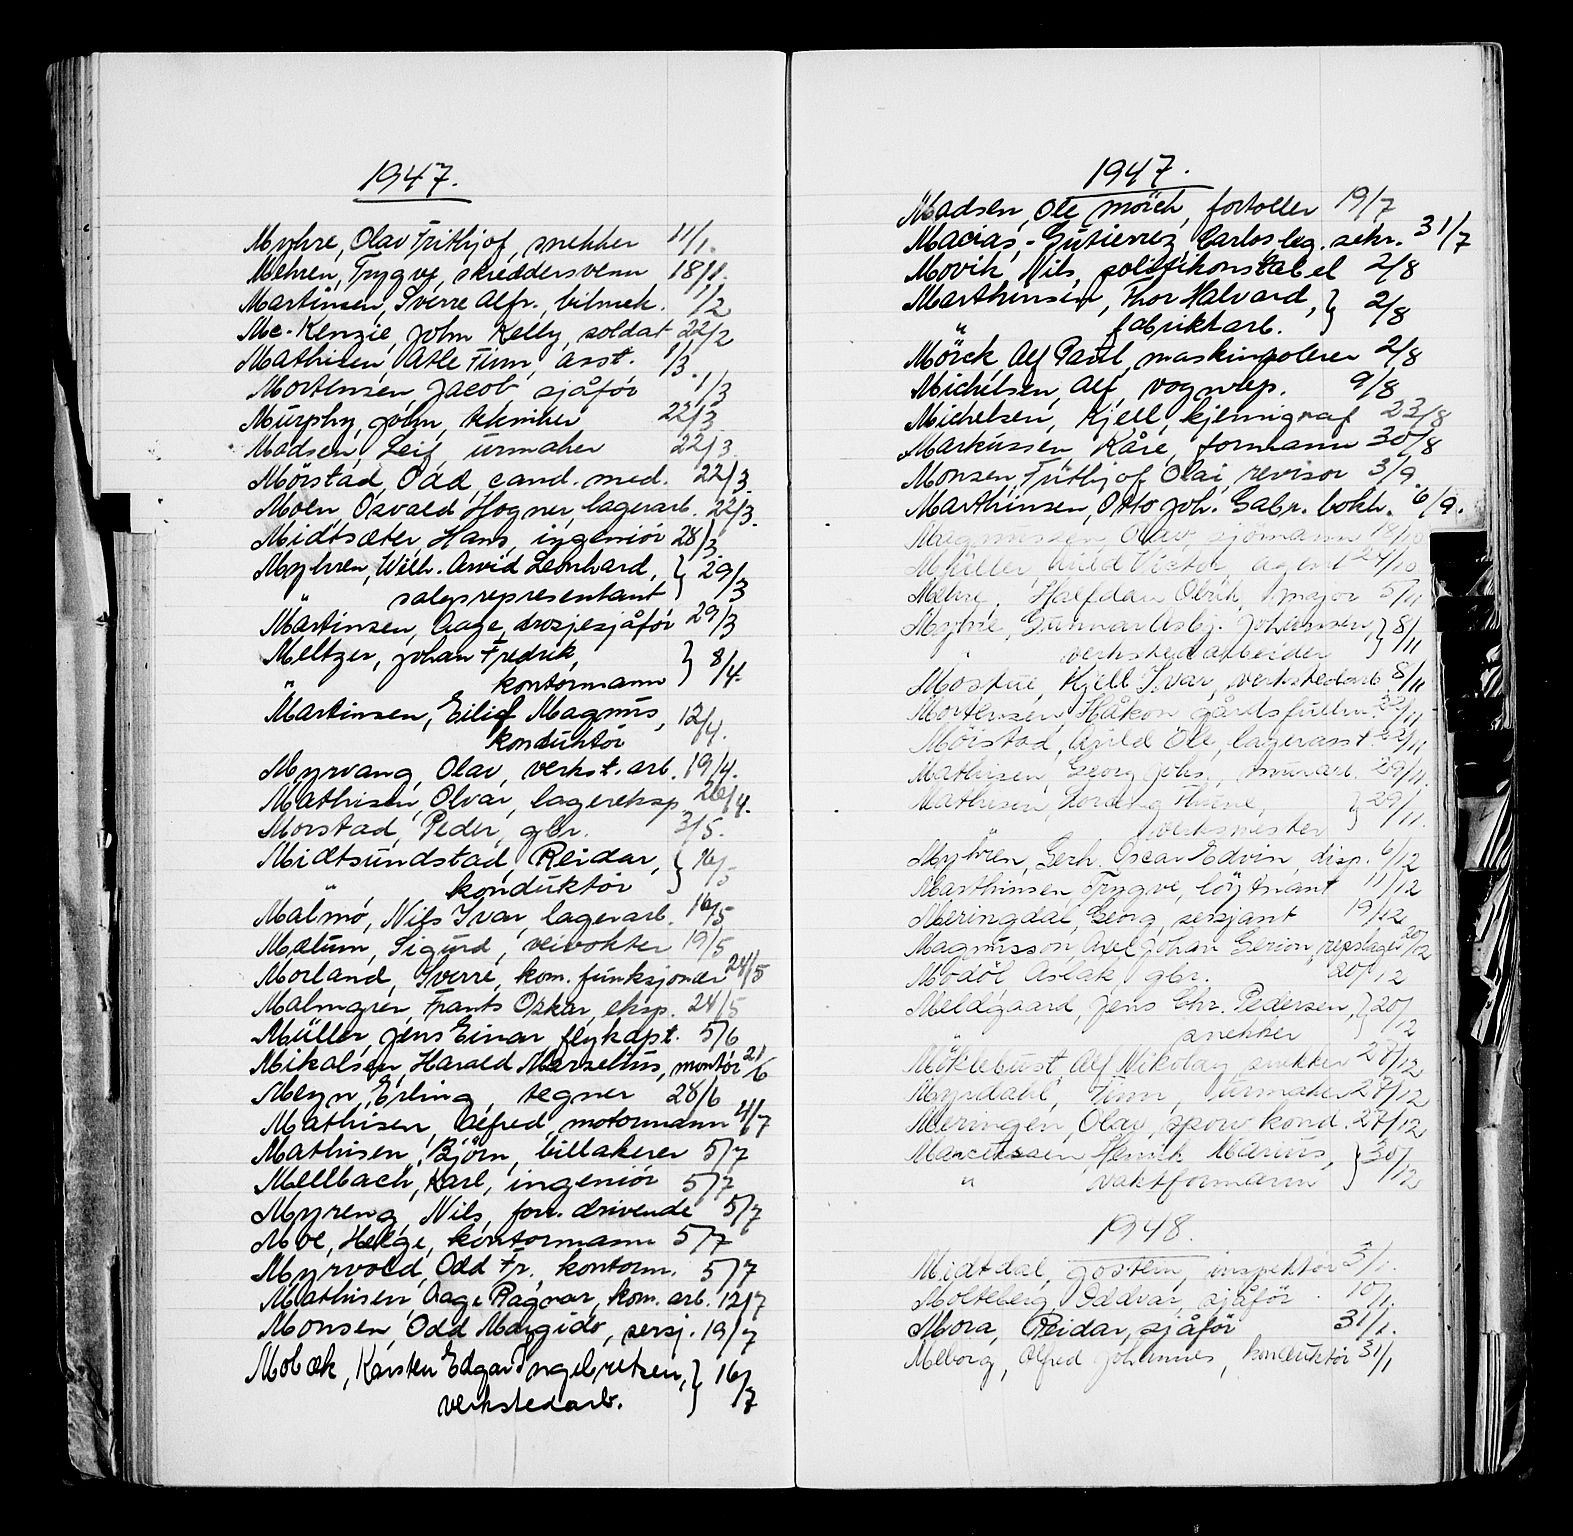 1947.
Myhre, Olav Frithjof, snekker 11/1.
Mehren, Trygve, skreddersvenn 18/1.
Martinsen, Sverre Alfr., bilmek. 1/2
Mc-Kenzie, John Kelly, soldat 22/2
Mathisen, Atle Finn, asst. 1/3.
Mortensen, Jacob, sjåfør 1/3
Murphy, John, tekniker 22/3
Madsen, Leif, urmaker 22/3.
Mörstad, Odd, cand. med. 22/3.
Moen, Osvald Hogner, lagerarb. 22/3.
Midtsæter, Hans, ingeniör 28/3
Myhren, Wilh. Arvid Leonhard, } 29/3
" salgsrepresentant
Martinsen, Aage, drosjesjåför 29/3
Meltzer, Johan Fredrik, } 8/4.
" kontormann
Martinsen, Eilif Magnus, 12/4.
konduktör
Myrvang, Olav, verkst. arb. 19/4.
Mathisen, Olvar, lagereksp. 26/4.
Morstad, Peder, gbr. 3/5.
Midtsundstad, Reidar, } 16/5
" konduktör
Malmö, Nils Ivar, lagerarb. 16/5
Mælum, Sigurd, veivokter 19/5
Morland, Sverre, kom. funksjonær 24/5
Malmgren, Frants Oskar, eksp. 24/5
Müller, Jens Einar, flykapt. 5/6
Mikalsen, Harald Marselius, montör 21/6
Meyn, Erling, tegner 28/6
Mathisen, Alfred, motormann 4/7
Mathisen, Björn, billakerer 5/7
Mellbach, Karl, ingeniör 5/7
Myreng, Nils, forr. drivende 5/7
Moe, Helge, kontormann 5/7
Myrvold, Odd Fr., kontorm. 5/7
Mathisen, Aage Ragnar, kom. arb. 12/7
Monsen, Odd Margido, sersj. 19/7
Mobæk, Karsten Edgar Ingebretsen, } 16/7
verkstedarb.
1947.
Madsen, Ole Mörch, fortoller 19/7
Macias,-Gutierrez Carlos, leg. sekr. 31/7
Movik, Nils, politikonstabel 2/8
Marthinsen, Thor Halvard, } 2/8
" fabrikkarb.
Mörck, Alf Paul, maskinpolerer 2/8
Michelsen, Alf, vognrep. 9/8
Michelsen, Kjell, kjemigraf 23/8
Markussen, Kåre, formann 30/8
Monsen, Frithjof Olai, revisor 3/9.
Marthinsen, Otto Joh. Gabr. bokh. 6/9.
Magnussen, Olav, sjömann 18/10
Müller, Arild Victor, agent 24/10
Mehre, Halfdan Olrik, major 5/11
Myhre, Gunnar Johansen, } 8/11
" verkstedarbeider
Mostue, Kjell Ivar, verkstedarb 8/11
Mortensen, Håkon gårdsfullm. 22/11
Möistad, Arild Ole, lagerasst. 22/11
Mathisen, Georg Johs., murarb. 29/11
Mathesen, Thine, } 29/11.
verksmester
Myhren, Gerh. Oscar Edvin, disp. 6/12
Marthinsen, Trygve, löytnant 11/12
Meringdal, Georg, sersjant 19/12
Magnusson, Axel Johan Gerion, repslager 20/12
Modöl Aslak, gbr. 20/12
Meldgaard, Jens Chr. Pedersen, } 20/12
snekker
Möklebust, Alf Nikolay, snekker 28/12
Myrdahl, Finn, urmaker 27/12
Meringen, Olav, sporv. kond. 27/12
Marcussen, Henrik Marius, } 30/12
" vaktformann
1948.
Midtdal, Jostein, inspektör 3/1.
Molteberg, Oddvar, sjåför 10/1.
Mora, Reidar, sjåför 31/1.
Meborg, Alfred Johannes, konduktör 31/1